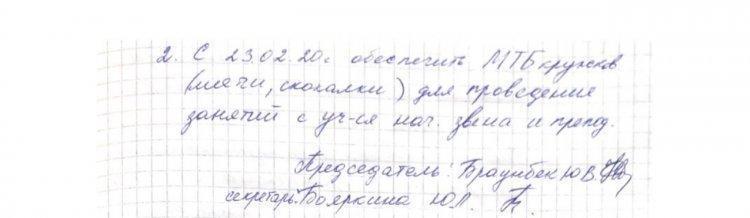 2. С 23.02.20г обеспечить МТБ кружков
(мячи, скокалки) для проведение
занятий с уч-ся нач. звена и препод.
Председатель: Браунбек Ю.В.
секретарь: Бояркина Ю.Л.